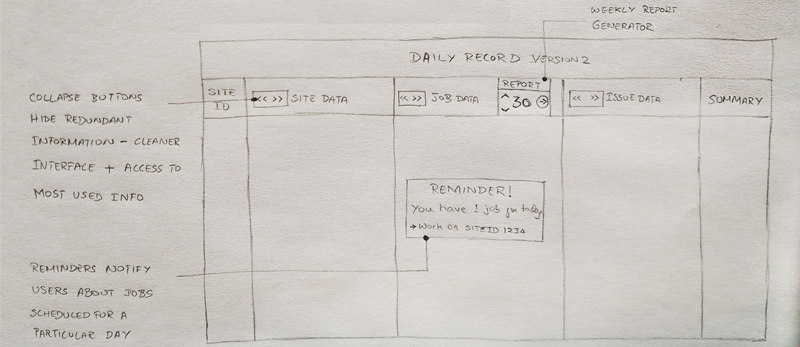 WEEKLY REPORT
GENERATOR
DAILY RECORD VERSION 2
SITE
ID
<< >> SITE DATA
<< >> JOB DATA
REPORT
30
<< >> ISSUE DATA
SUMMARY
COLLAPSE BUTTONS
HIDE REDUNDANT
INFORMATION - CLEANER
INTERFACE + ACCESS TO
MOST USED INFO
REMINDER!
You have 1 job for today
→ Work on SITE ID 1234
REMINDERS NOTIFY
USERS ABOUT JOBS
SCHEDULED FOR A
PARTICULAR DAY